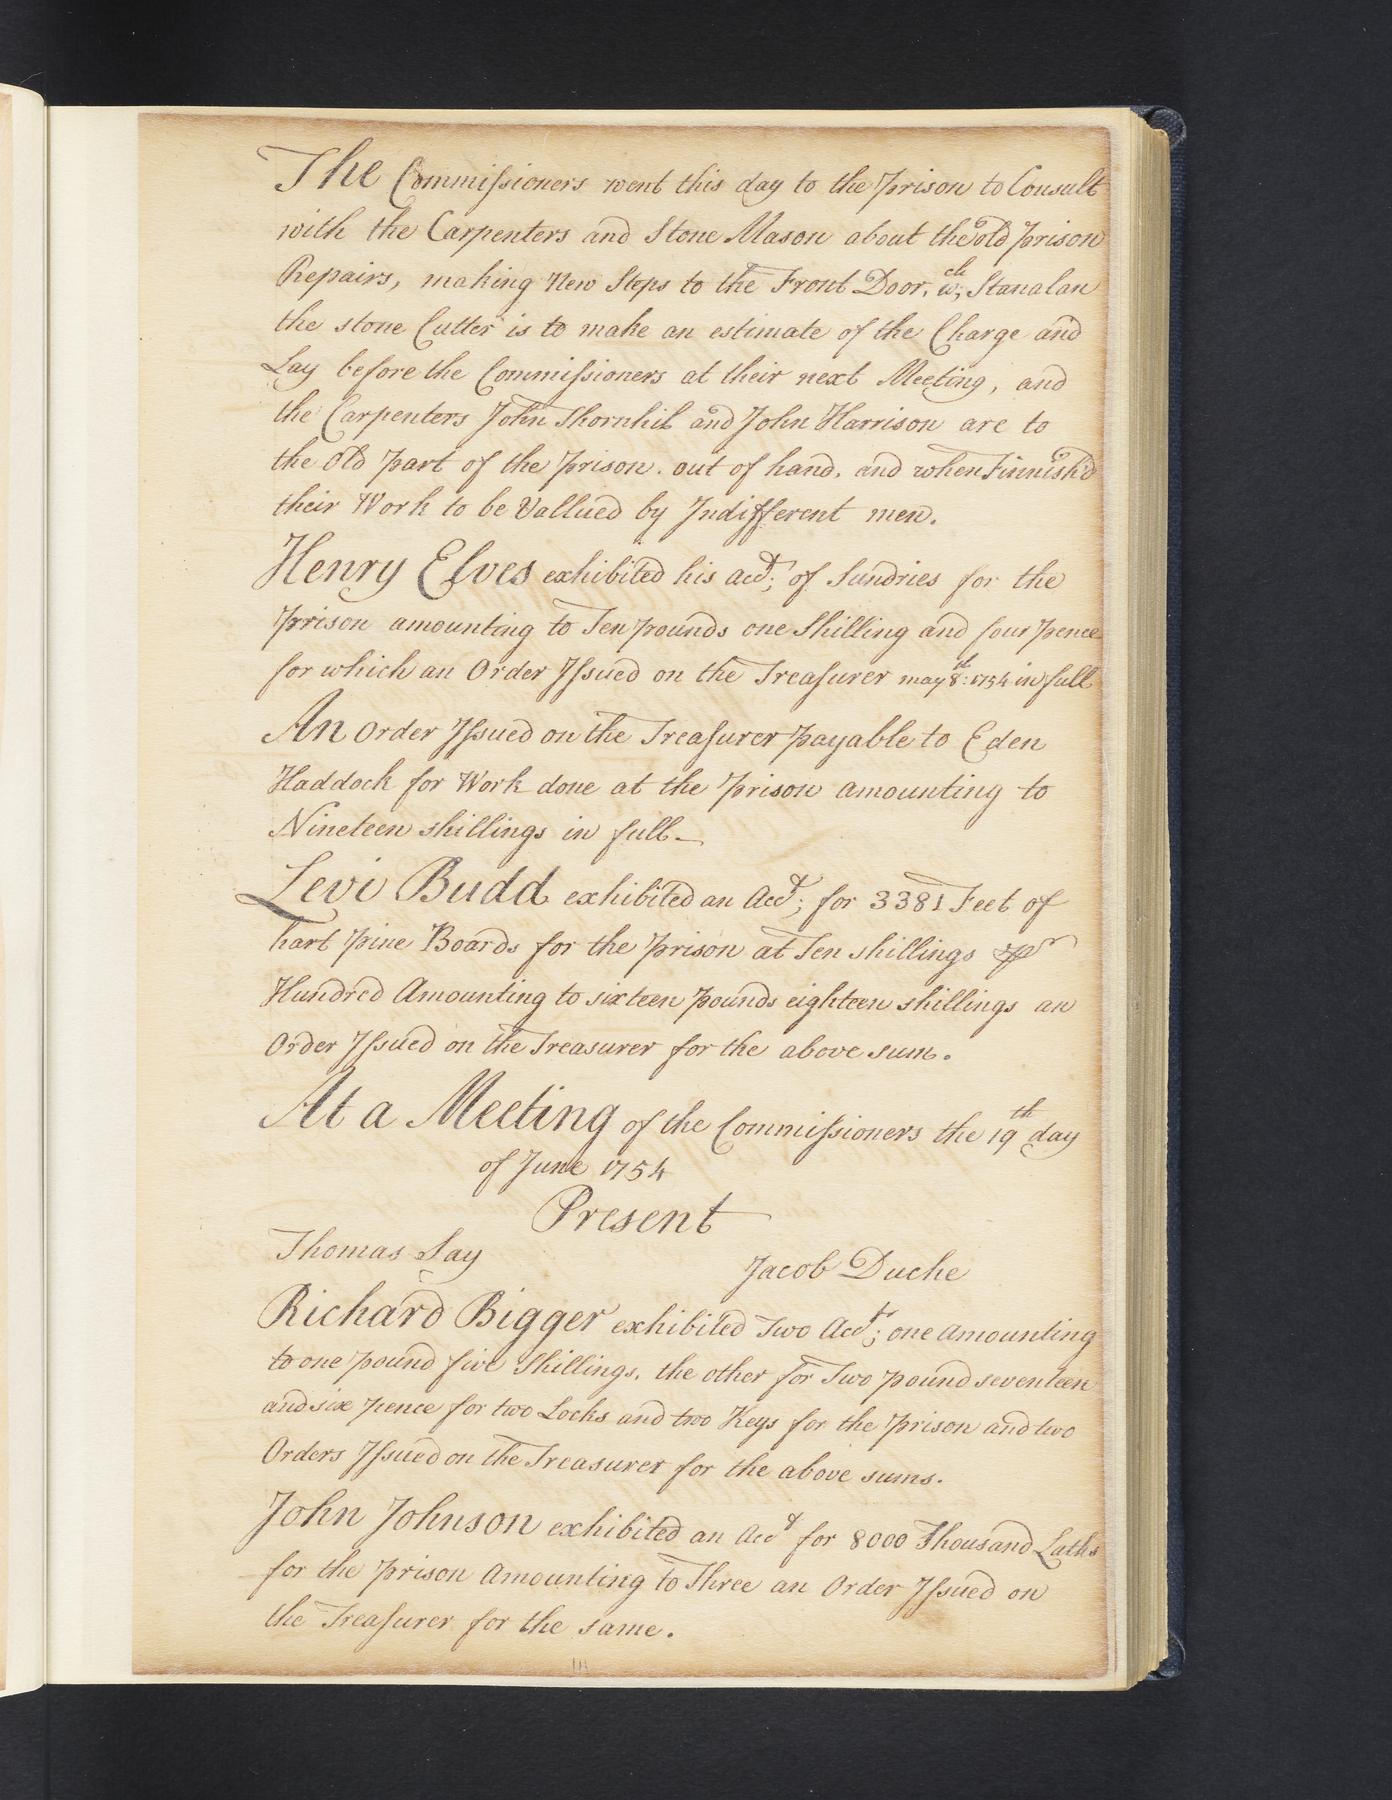 The Commissioners went this day to the prison to Consult
with the Carpenters and Stone Mason about the old prison
Repairs, making New Steps to the Front Door, wch; Stanalan
the stone Cutter is to make an estimate of the Charge and
Lay before the Commissioners at their next Meeting, and
the Carpenters John Thornhil and John Harrison are to
the old part of the prison. out of hand. and when Finnish'd
their Work to be Vallued by Indifferent men.
Henry Elves exhibited his acct; of Sundries for the
prison amounting to Ten pounds one Shilling and four pence
for which an Order Issued on the Treasurer may 8th: 1754 in full
An Order Issued on the Treasurer payable to Eden
Haddock for Work done at the prison amounting to
Nineteen shillings in full—
Levi Budd exhibited an Acct; for 3381 Feet of
hart pine Boards for the prison at Ten shillings pr
Hundred Amounting to sixteen pounds eighteen shillings an
Order Issued on the Treasurer for the above sum.
At a Meeting of the Commissioners the 19th day
of June 1754
Present
Thomas Say
Jacob Duche
Richard Bigger exhibited Two Acct; one amounting
to one pound five Shillings. the other for Two pound seventeen
and six pence for two Locks and two Keys for the prison and two
Orders Issued on the Treasurer for the above sums.
John Johnson exhibited an Acct for 8000 Thousand Laths
for the prison Amounting to Three an Order Issued on
the Treasurer for the same.